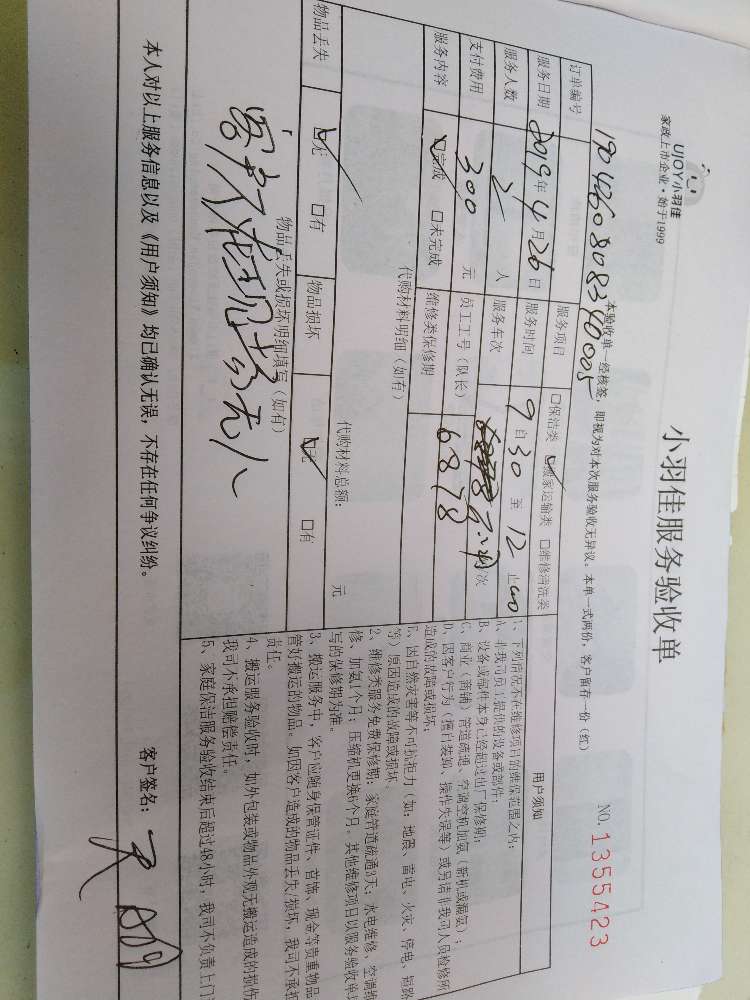 UJOY小羽佳
家政上市企业·始于1999
小羽佳服务验收单
NO. 1355423
本验收单一经核签，即视为对本次服务验收无异议。本单一式两份，客户留存一份（红）
订单编号 1904260808340005
服务项目 □保洁类 ☑搬家运输类 □维修清洗类
服务日期 2019年4月26日
服务时间 9自30至12止00
服务人数 2人
服务车次 次
支付费用 300元
员工工号（队长） 6878
服务内容 ☑完成 □未完成
维修类保修期
代购材料明细（如有）
代购材料总额： 元
物品丢失 ☑无 □有
物品损坏 ☑无 □有
物品丢失或损坏明细填写（如有）
用户须知
1、下列情况不在维修项目的维保范围之内：
A、非我司员工提供的设备或部件；
B、设备或部件本身已经超过出厂保修期；
C、商业（商铺）管道疏通、空调空机加氨（新机或漏氨）；
D、因客户行为（擅自装卸、操作失误等）或另请非我司人员检修所
造成的故障或损坏；
E、因自然灾害等不可抗拒力（如：地震、雷电、火灾、停电、短路
等）原因造成的故障或损坏。
2、维修类服务免费保修期：家庭管道疏通3天；水电维修、空调
修、加氨1个月；压缩机更换6个月。其他维修项目以服务验收单
写的保修期为准。
3、搬运服务中，客户应随身保管证件、首饰、现金等贵重物品
管好搬运的物品。如因客户造成的物品丢失/损坏，我司不承担
责任。
4、搬运服务验收时，如外包装或物品外观无搬运造成的损伤
我司不承担赔偿责任。
5、家庭保洁服务验收结束后超过48小时，我司不负责上门
本人对以上服务信息以及《用户须知》均已确认无误，不存在任何争议纠纷。
客户签名：